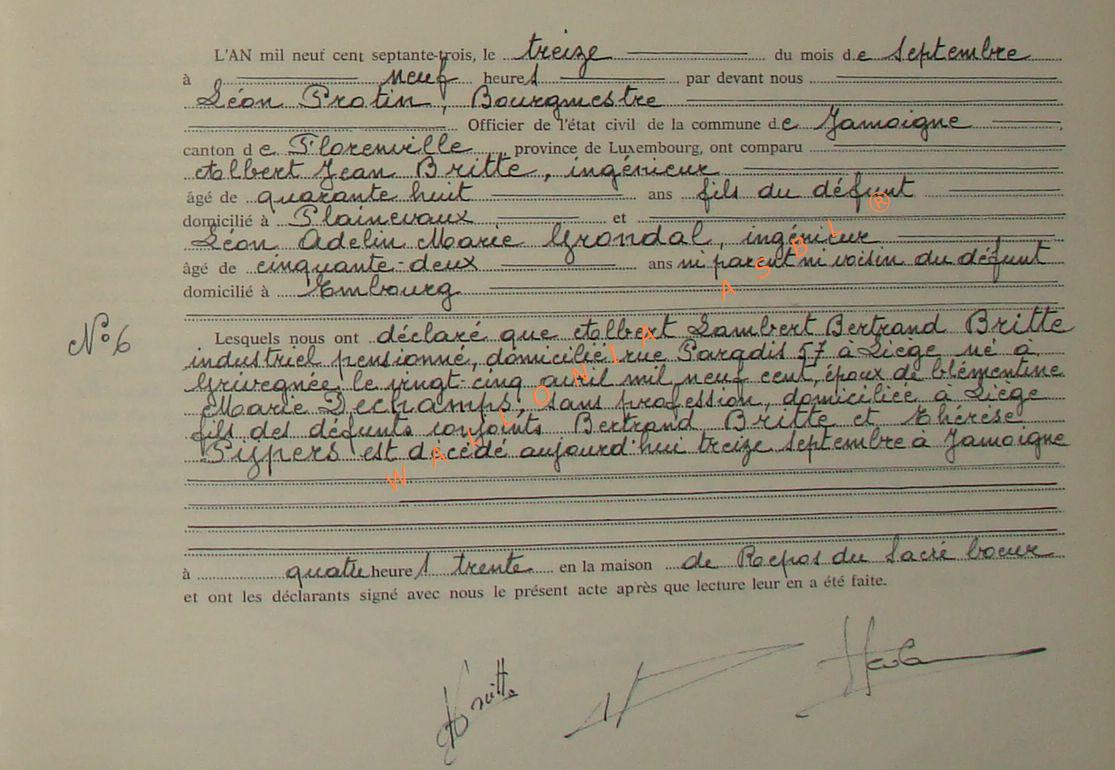 L'AN mil neuf cent septante-trois, le treize du mois de septembre
à neuf heures par devant nous
Léon Protin, Bourgmestre
Officier de l'état civil de la commune de Jamoigne
canton de Florenville, province de Luxembourg, ont comparu
Albert Jean Britte, ingénieur
âgé de quarante huit ans fils du défunt
domicilié à Plainevaux et
Léon Adelin Marie Grondal, ingénieur
âgé de cinquante-deux ans ni parent ni voisin du défunt
domicilié à Embourg
N° 6
Lesquels nous ont déclaré que Albert Lambert Bertrand Britte
industriel pensionné, domicilié rue Paradis 57 à Liège né à
Grivegnée le vingt cinq avril mil neuf cent, époux de Clémentine
Marie Dechamps, sans profession, domiciliée à Liège
fils des défunts conjoints Bertrand Britte et Thérèse
Pypers est décédé aujourd'hui treize septembre à Jamoigne
à quatre heures trente en la maison de Repos du Sacré Coeur
et ont les déclarants signé avec nous le présent acte après que lecture leur en a été faite.
Britte
WALLONIA ASBL ®